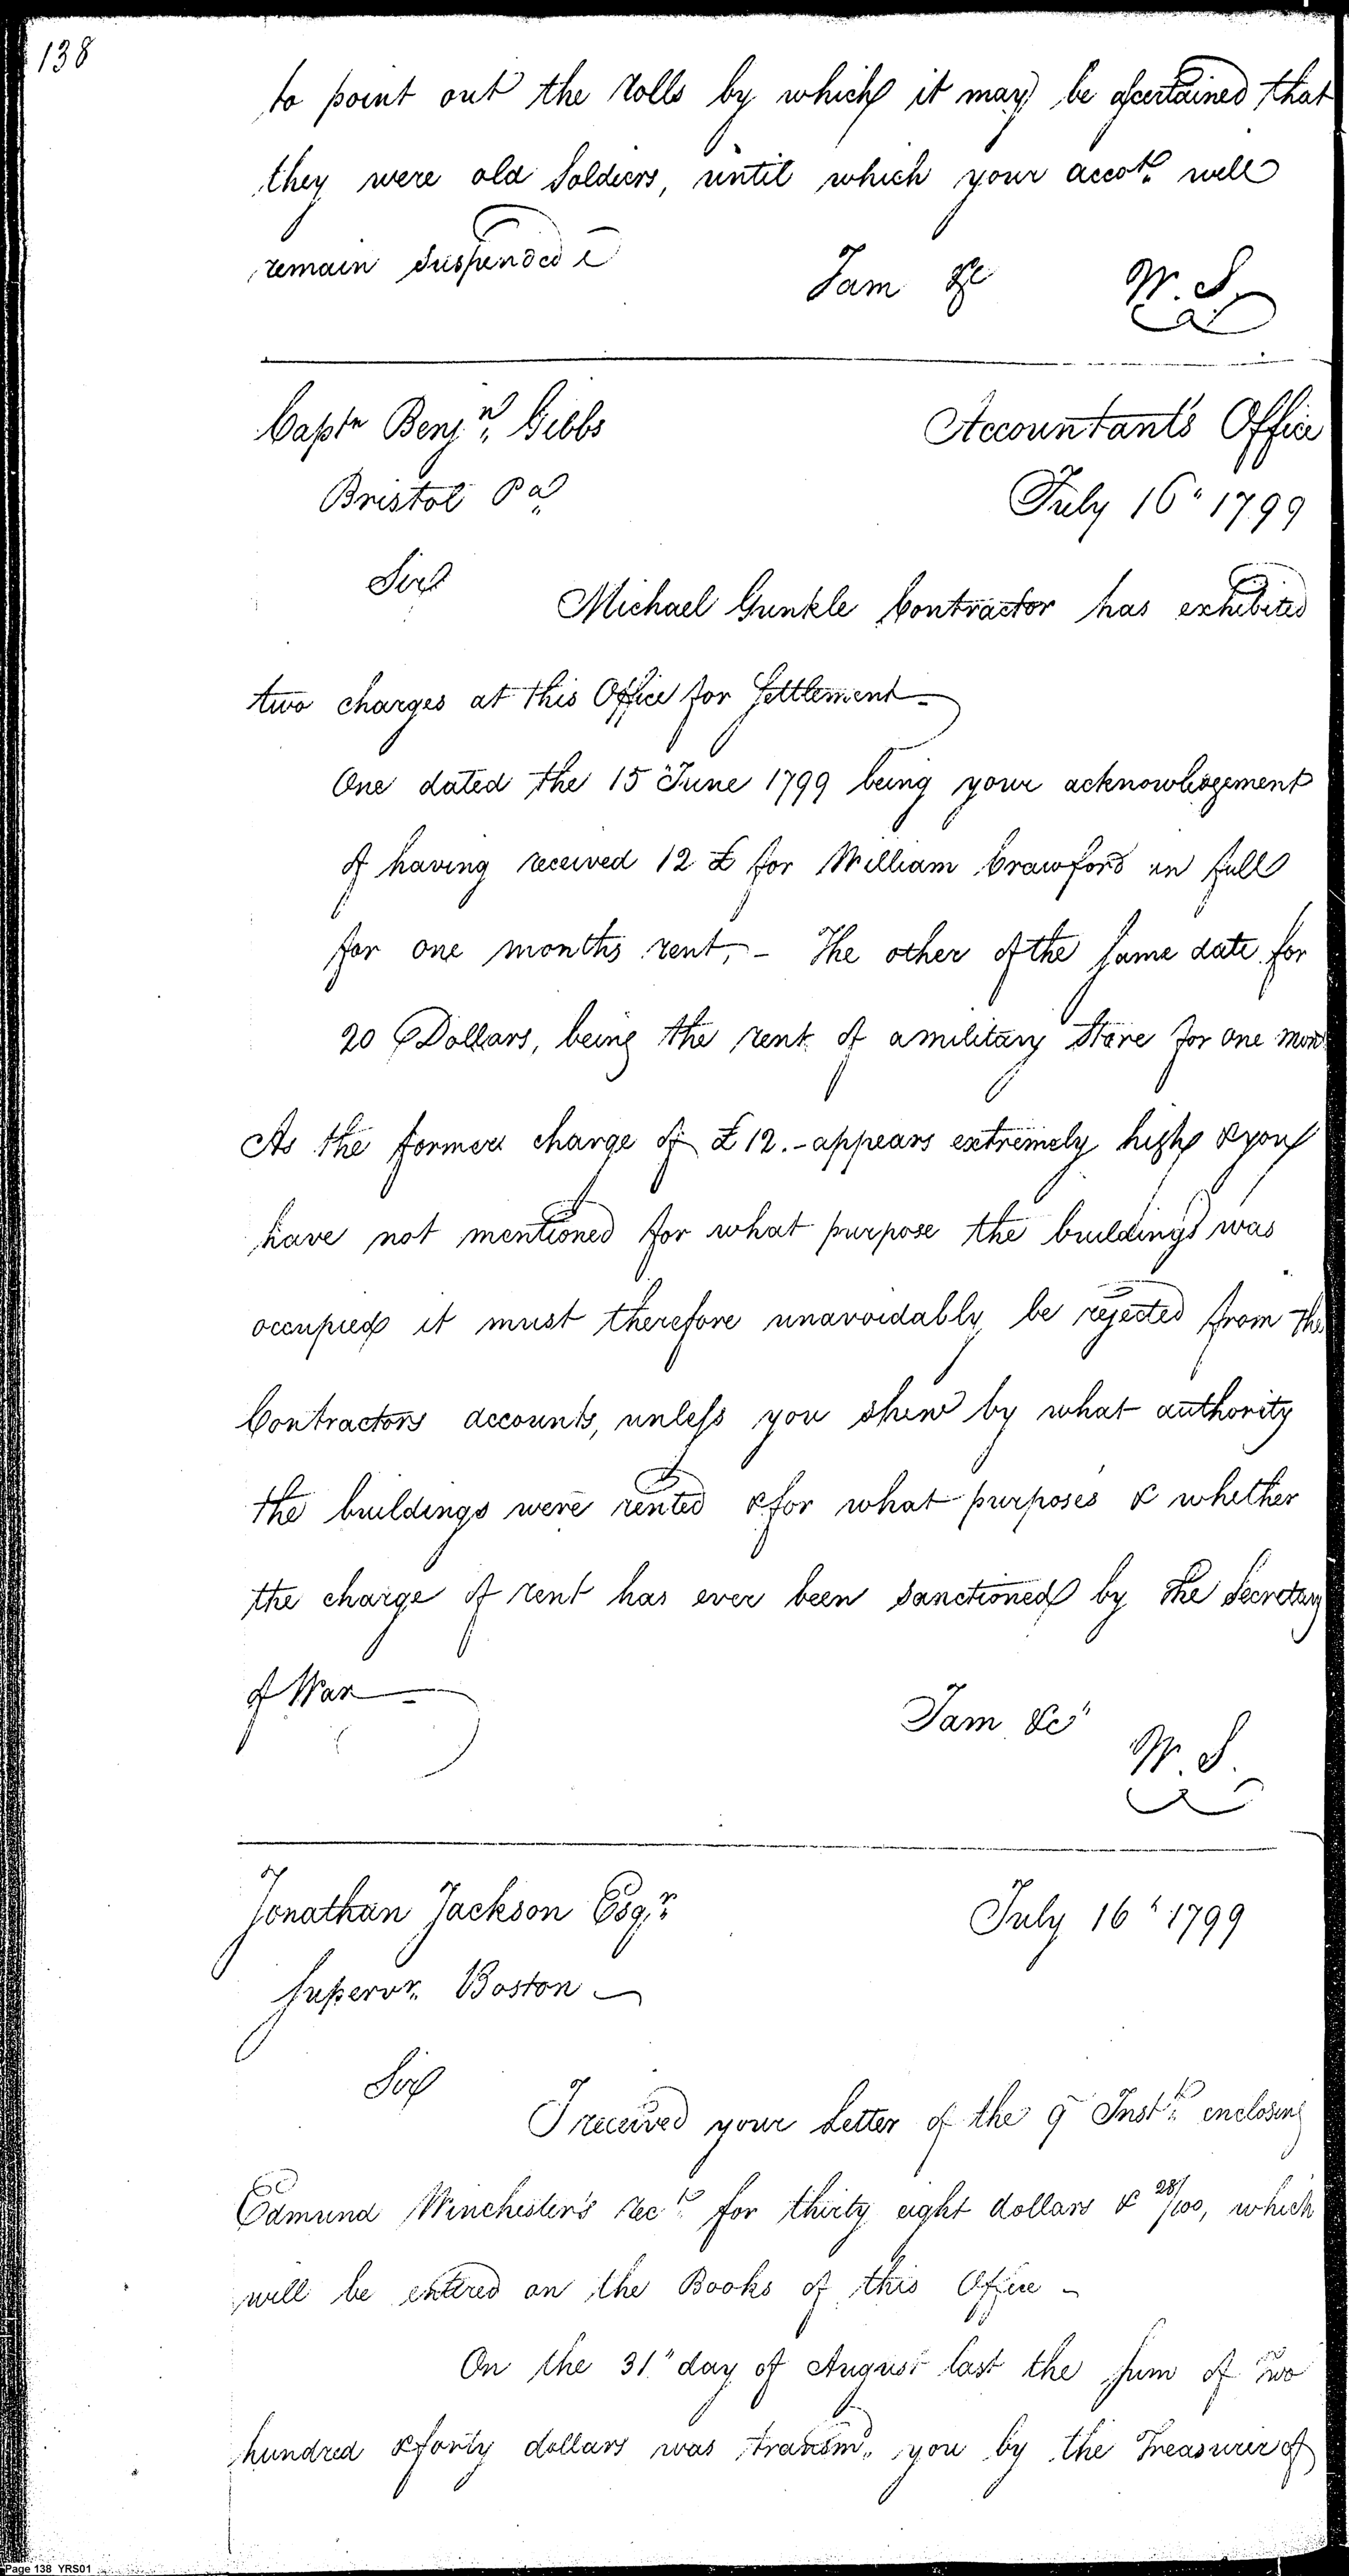 138
to point out the rolls by which it may be ascertained that
they were old Soldiers, until which your accot. will
remain suspended
I am &c W. S.
Captn Benjn. Gibbs Accountant's Office
Bristol Pa. July 16" 1799
Sir
Michael Gunkle Contractor has exhibited
two charges at this Office for Settlement-
One dated the 15" June 1799 being your acknowledgement
of having received 12 £ for William Crawford in full
for one months rent,- The other of the same date for
20 Dollars, being the rent of a military Store for one
As the former charge of £12.- appears extremely high & you
have not mentioned for what purpose the buildings was
occupied it must therefore unavoidably be rejected from the
Contractors accounts, unless you shew by what authority
the buildings were rented & for what purposes & whether
the charge of rent has ever been sanctioned by the Secretary
of War-
I am &c"
W. S.
Jonathan Jackson Esqr. July 16" 1799
Supervr. Boston -
Sir
I received your Letter of the 9 Instt. enclosing
Edmund Winchester's rect. for thirty eight dollars & 28/100, which
will be entered on the Books of this Office -
On the 31" day of August last the sum of two
hundred & forty dollars was transmd. you by the Treasurer of
Page 138 YRS01